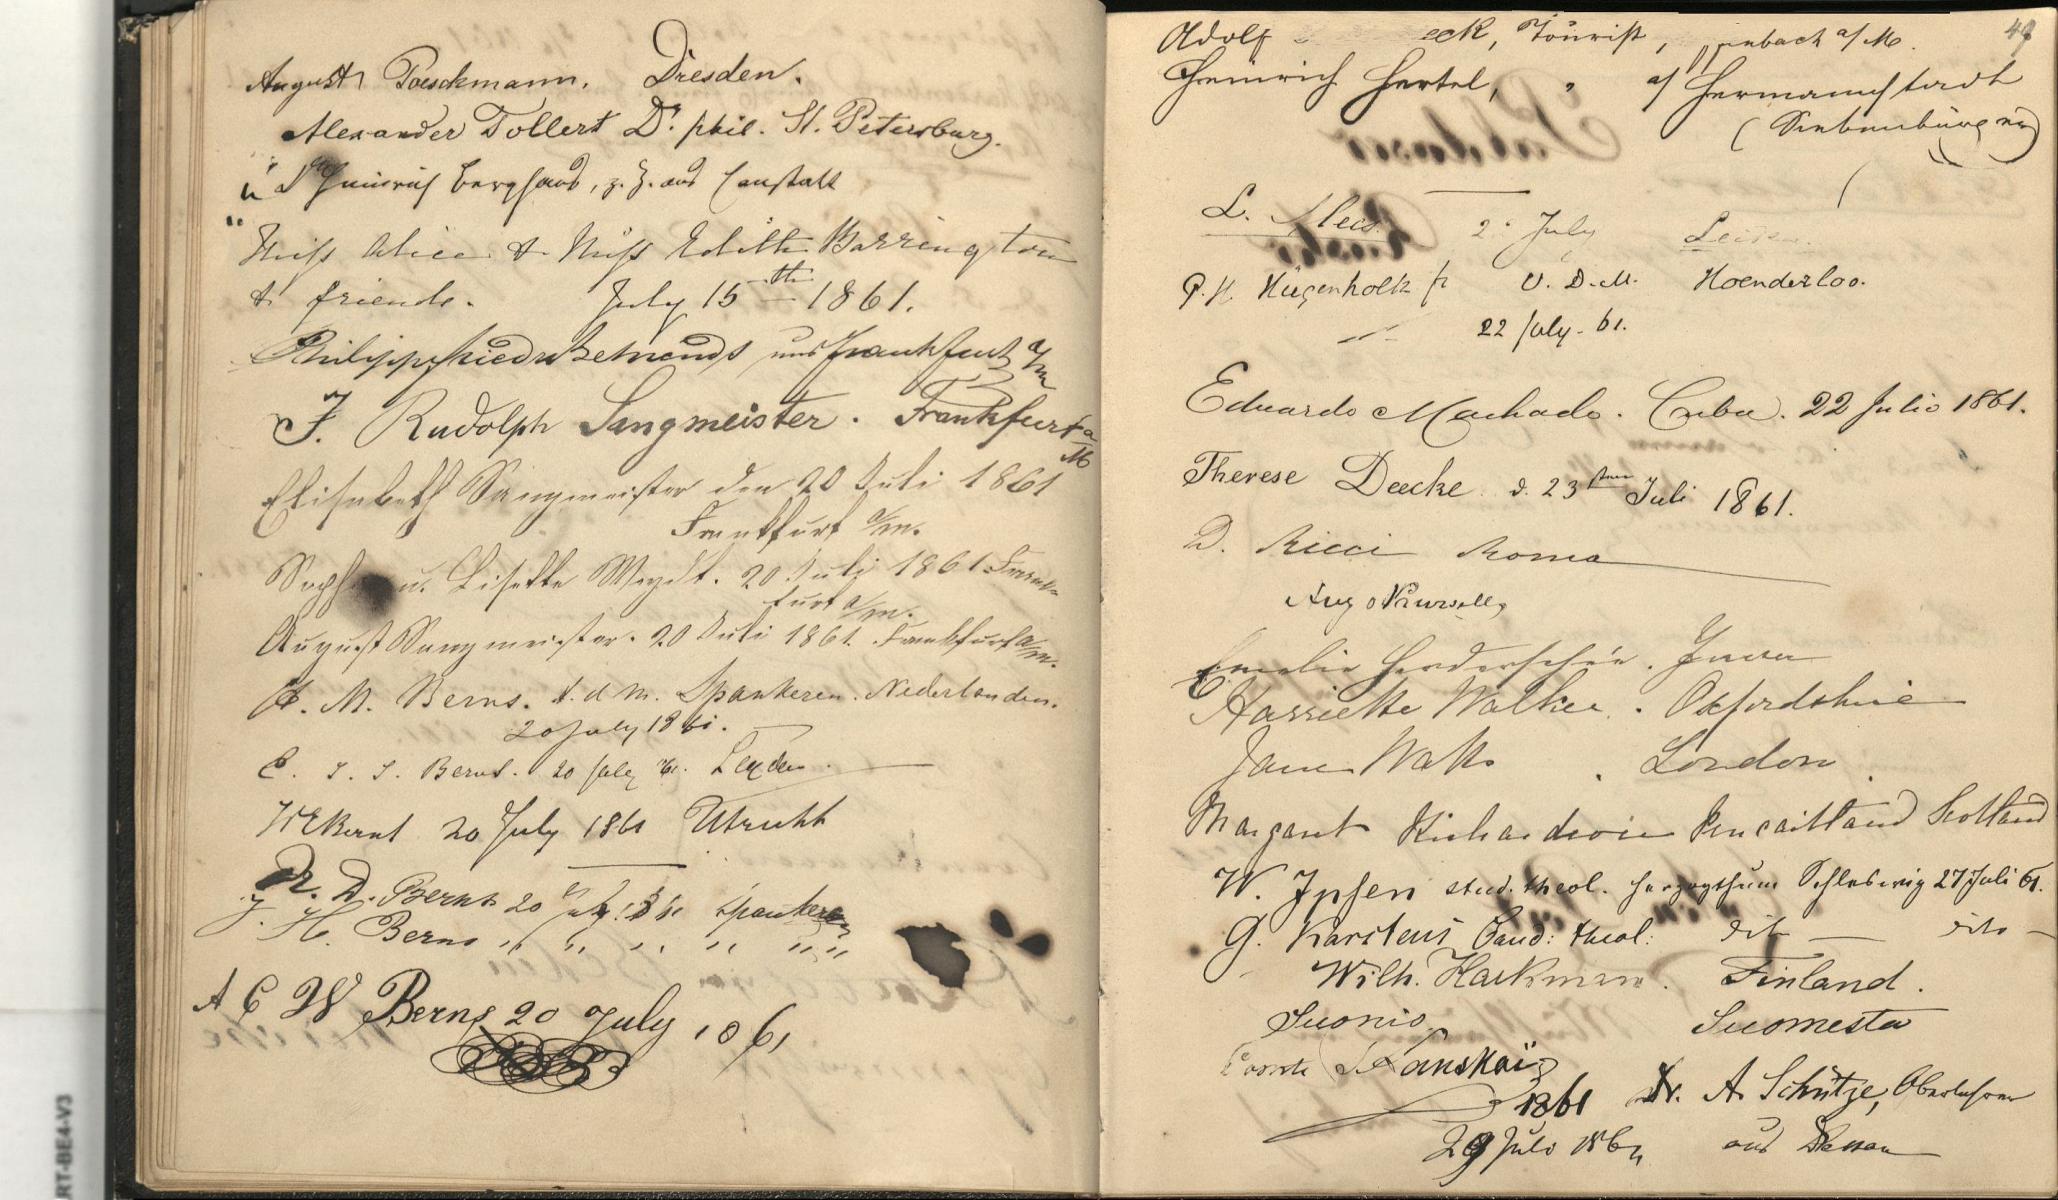 August Poeschmann. Dresden.
Alexander Tollert Dr. phil. St. Petersburg.
Dr Heinrich Berghaus, z. Z. aus Canstatt
Miss Alice & Miss Edith Barrington
& friends. July 15th 1861.
Philipp Friedr. aus Frankfurt a/m
J. Rudolph Sangmeister. Frankfurt a/M
Elisabeth Sangmeister den 20 Juli 1861
Frankfurt a/m.
u. Lisette Weydt. 20 Juli 1861 Frank-
furt a/m.
August Sangmeister. 20 Juli 1861. Frankfurt a/m.
M. Berns. Spankeren. Nederlanden.
20 July 1861.
Berns. 20 July 61. Leyden.
Berns 20 July 1861 Utrecht
D. Berns 20 July 1861 Spankeren
J. H. Berns " " " " "
A C W Berns 20 July 1861
49
Adolf eck, Tourist, a/M.
Heinrich Hertel, " a/ Hermannstadt
(Siebenbürgen)
L. July
P. H. Hugenholtz jr V. D. M. Hoenderloo.
22 July. 61.
Eduardo Machado. Cuba. 22 Julio 1861.
Therese Deecke d. 23sten Juli 1861.
D. Ricci Roma
Aug
Emelie
Harriette Walker. Oxfordshire
Jane Watts. London
Margaret Richardson Pencaitland Scotland
W. Ipsen stud. theol. Herzogthum Schleswig 27 Juli 61.
G. Karstens Cand: theol: dit — dito —
Wilh. Finland.
Suonio Suomesta
Comte Lanskoï
1861 Dr. A. Schütze, Oberlehrer
29 Juli 1861 aus Dessau